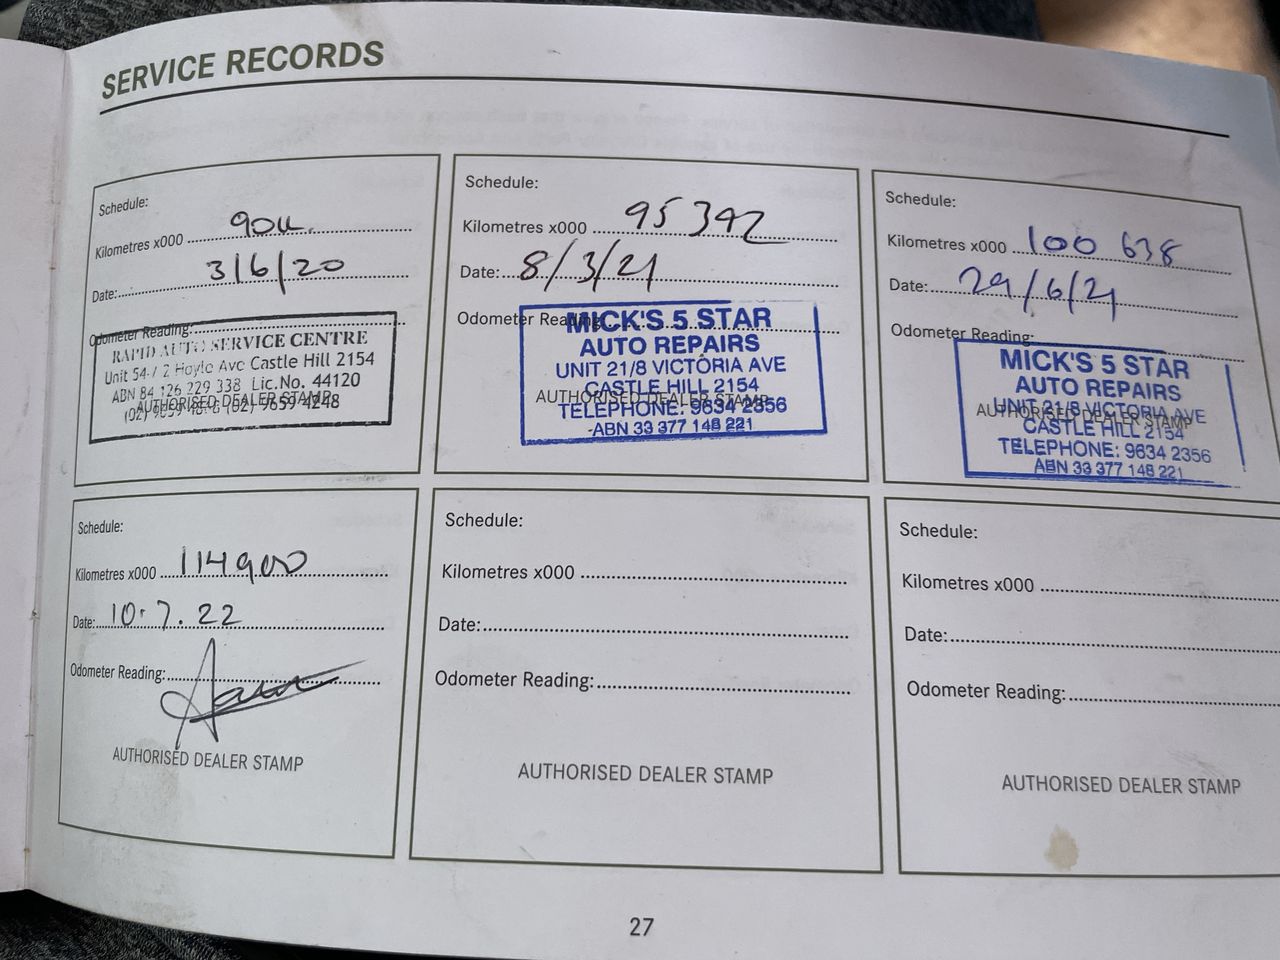 SERVICE RECORDS
Schedule:
Kilometres x000 90K
Date: 3/6/20
Odometer Reading:
RAPID AUTO SERVICE CENTRE
Unit 54 / 2 Hoyle Ave Castle Hill 2154
ABN 84 126 229 338 Lic.No. 44120
(02) 9659 4248
AUTHORISED DEALER STAMP
Schedule:
Kilometres x000 95392
Date: 8/3/21
Odometer Reading:
MICK'S 5 STAR
AUTO REPAIRS
UNIT 21/8 VICTORIA AVE
CASTLE HILL 2154
AUTHORISED DEALER STAMP
TELEPHONE: 9634 2356
ABN 33 377 148 221
Schedule:
Kilometres x000 100 638
Date: 29/6/21
Odometer Reading:
MICK'S 5 STAR
AUTO REPAIRS
UNIT 21/8 VICTORIA AVE
AUTHORISED DEALER STAMP
CASTLE HILL 2154
TELEPHONE: 9634 2356
ABN 33 377 148 221
Schedule:
Kilometres x000 114900
Date: 10.7.22
Odometer Reading:
AUTHORISED DEALER STAMP
Schedule:
Kilometres x000
Date:
Odometer Reading:
AUTHORISED DEALER STAMP
Schedule:
Kilometres x000
Date:
Odometer Reading:
AUTHORISED DEALER STAMP
27